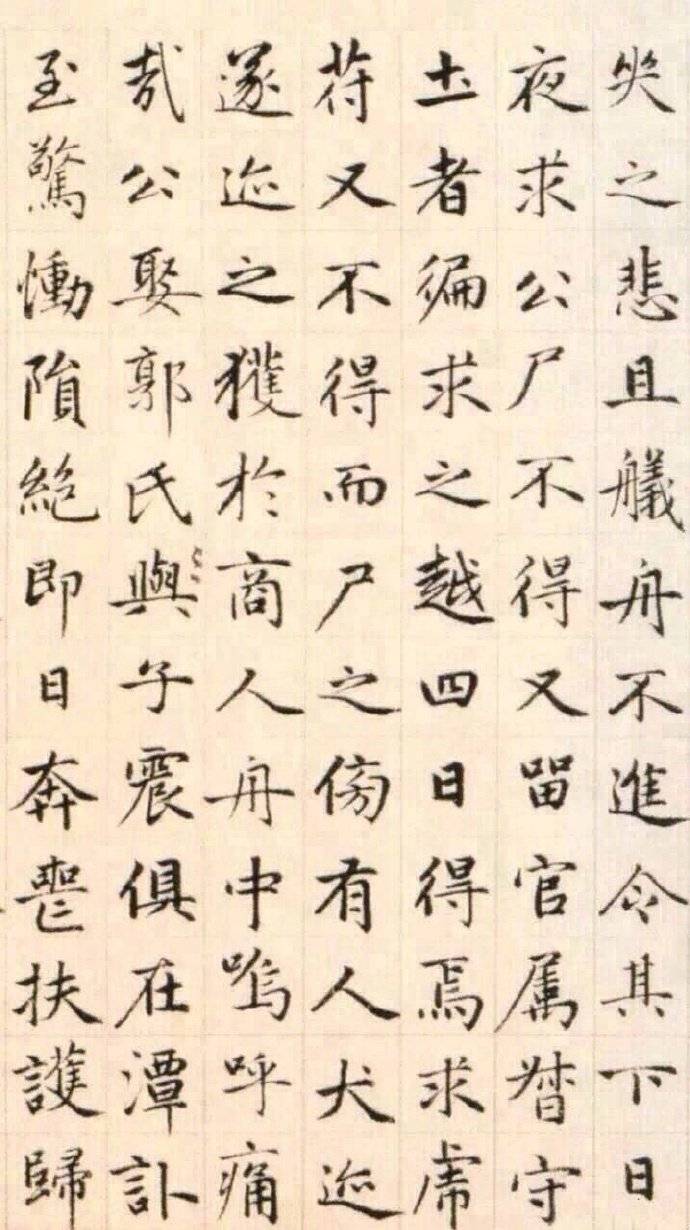 哭之悲且艤舟不進令其下日
夜求公尸不得又留官属督守
土者徧求之越四日得焉求虎
符又不得而尸之傍有人犬迹
遂迹之獲於商人舟中嗚呼痛
哉公娶郭氏與子震俱在潭訃
至驚慟隕絶即日奔喪扶護歸